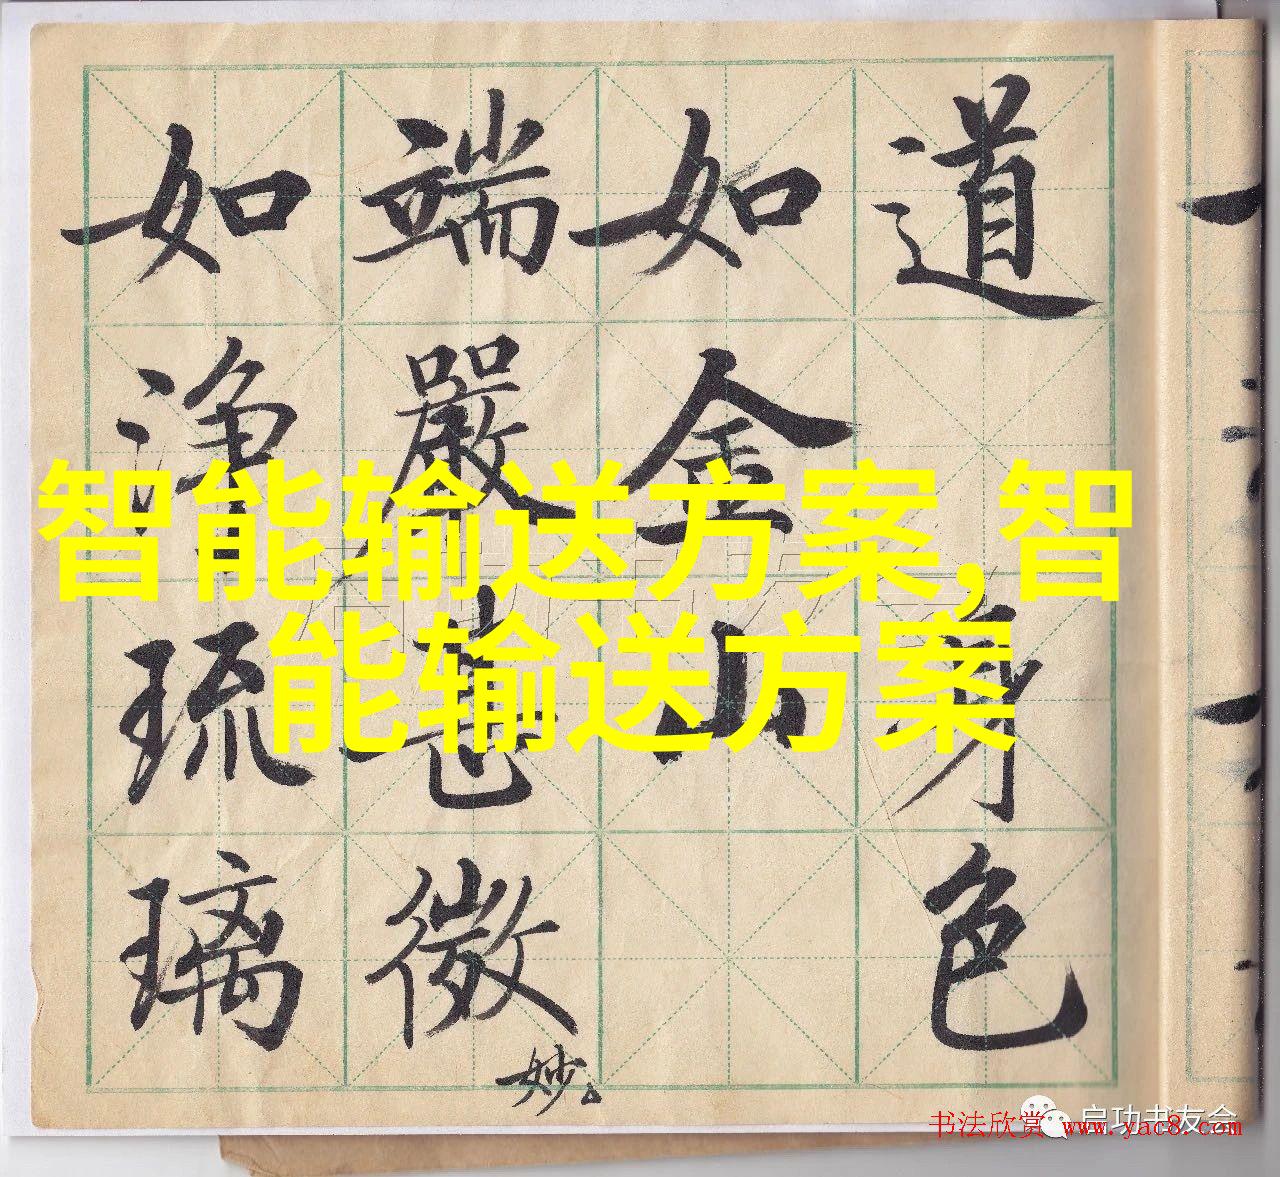 道 身色
如金山
端嚴甚微妙
如浄琉璃
智能输送方案,智
能输送方案
启功书友会
书法欣赏 www.yac8.com